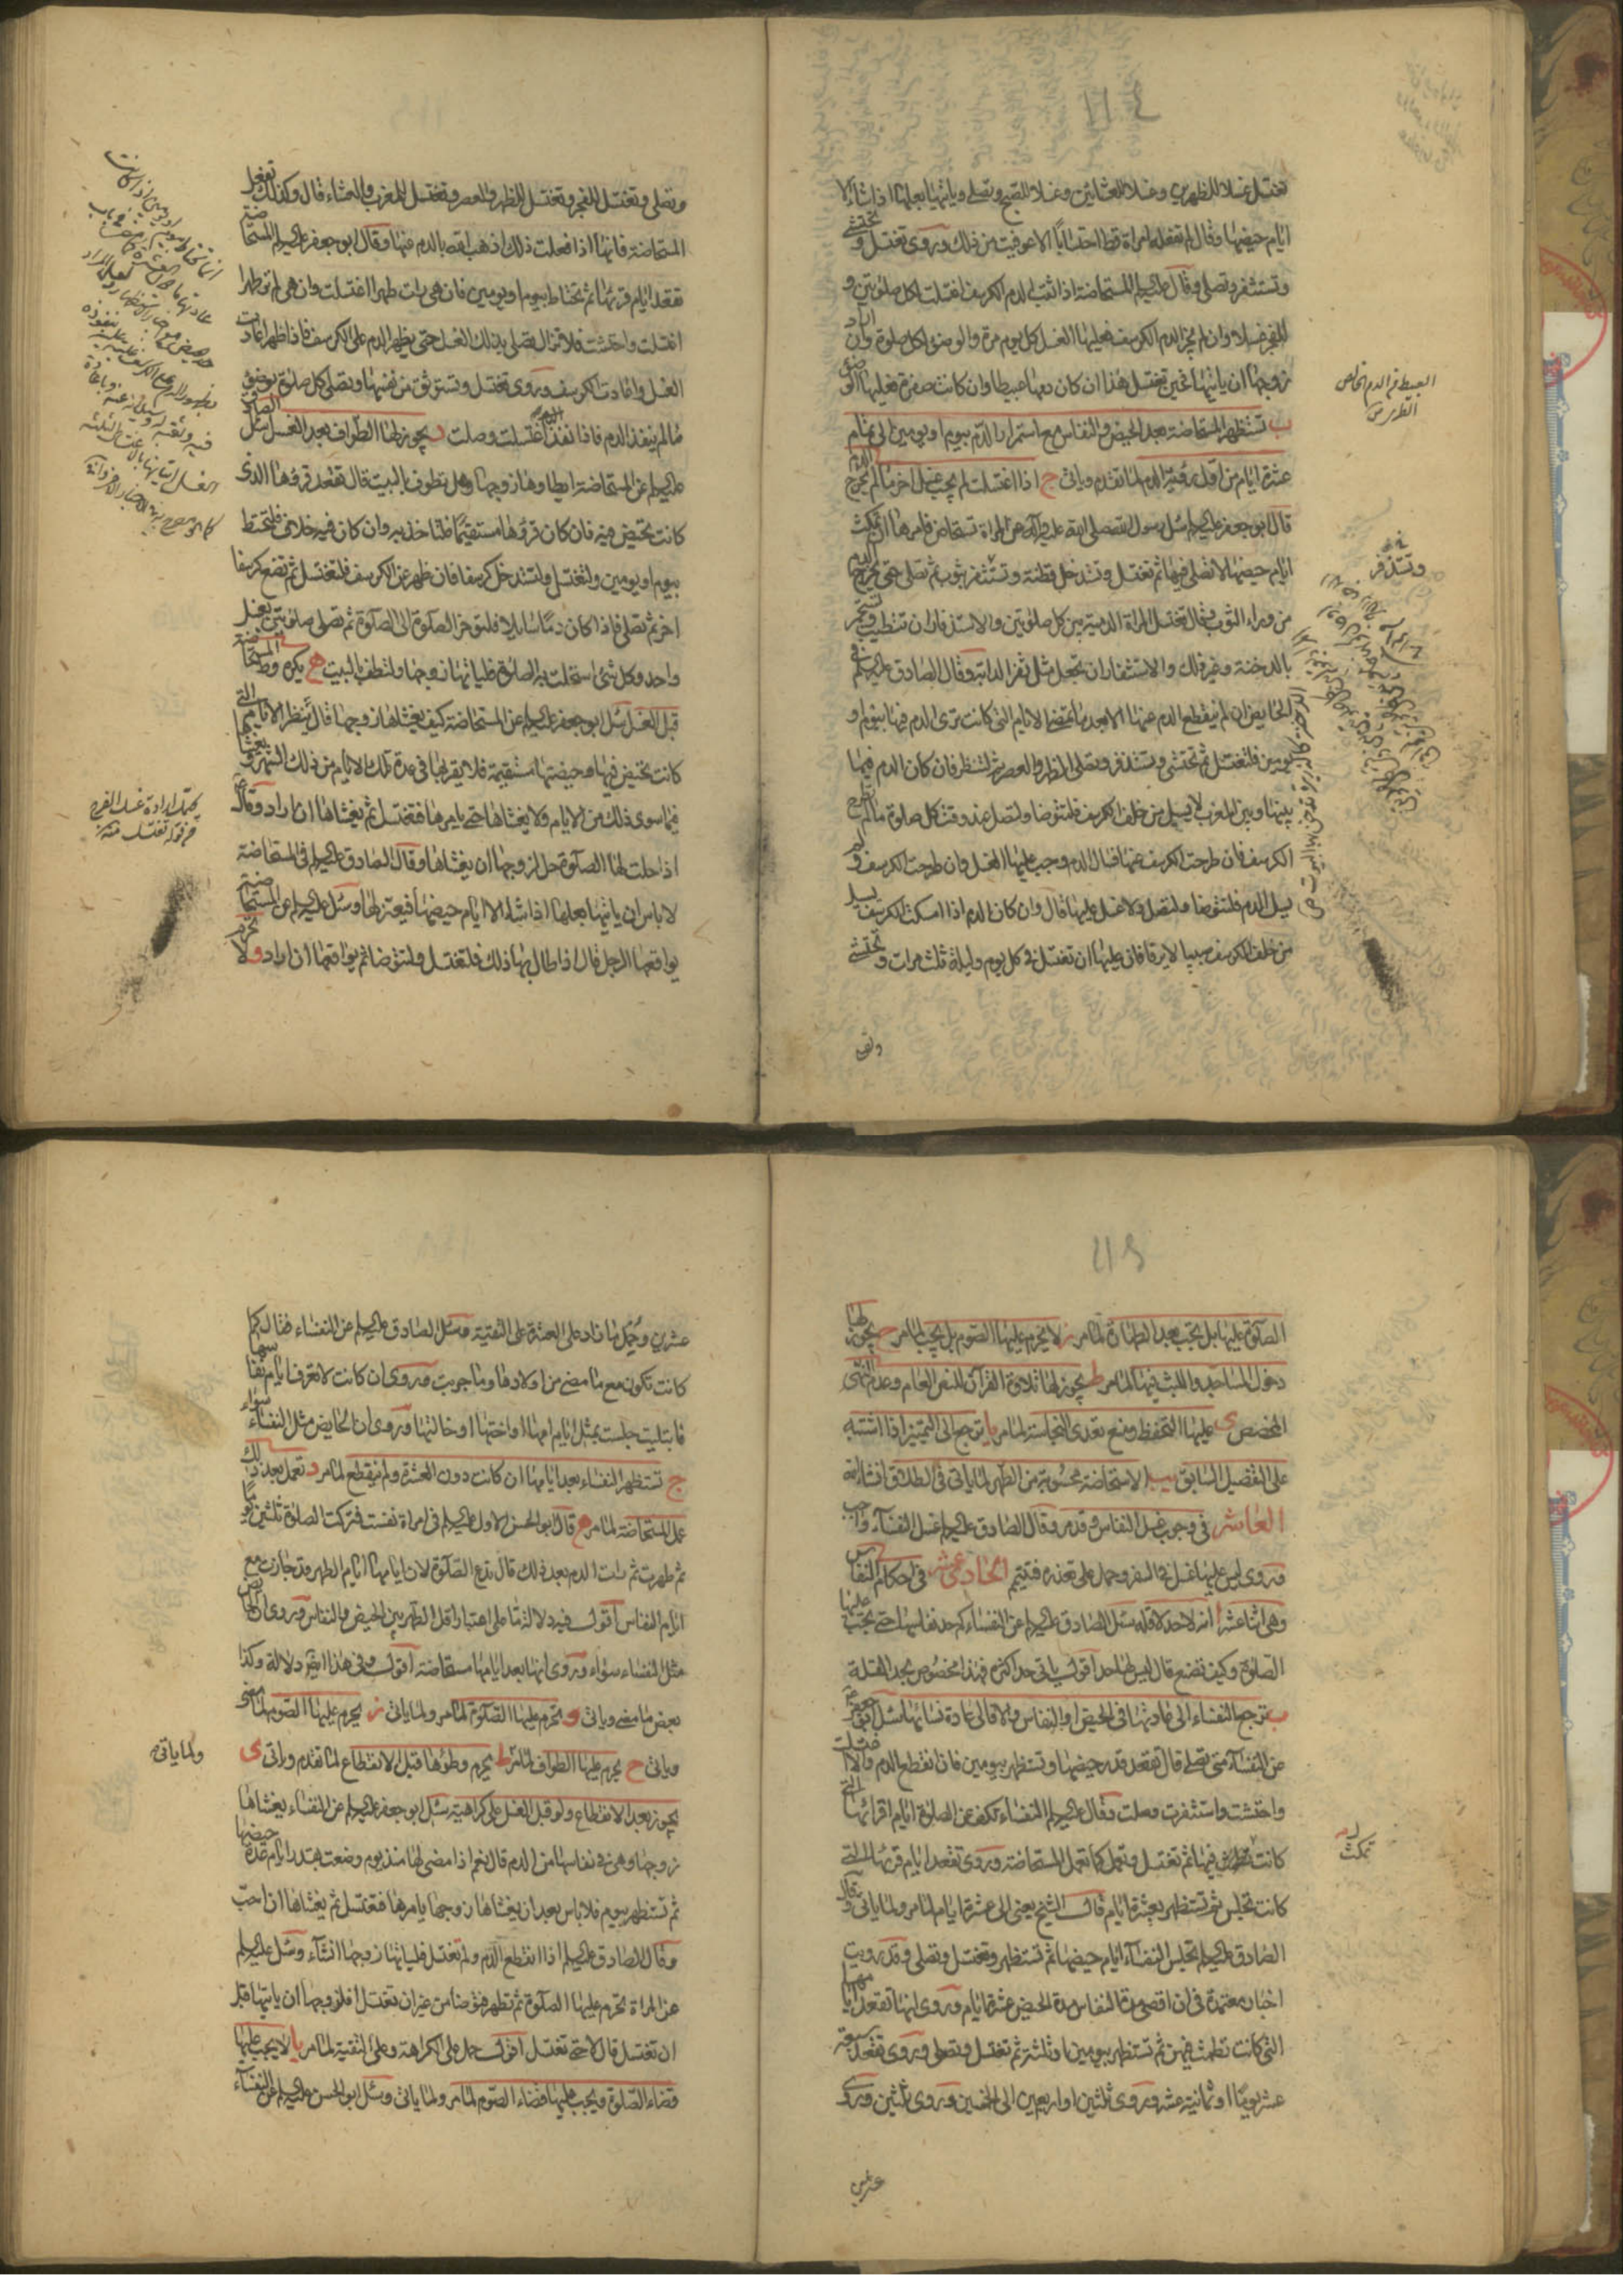 تغتسل غسلا للظهرين وغسلا للعشائين وغسلا للصبح وتصلى وياتيها بعلها اذا شاء الا
ايام حيضها وقال لم تفعله امراة قط احتسابا الا عوفيت من ذلك وروى تغتسل وتحتشى
وتستثفر وتصلى وقال عليه السلام المستحاضة اذا ثقب الدم الكرسف اغتسلت لكل صلوتين و
للفجر غسلا وان لم يجز الدم الكرسف فعليها الغسل كل يوم مرة والوضوء لكل صلوة وان اراد
زوجها ان ياتيها فحين تغتسل هذا ان كان دمها عبيطا وان كانت صفرة فعليها الوضوء
ب تستظهر المستحاضة بعد الحيض والنفاس مع استمرار الدم بيوم او يومين الى تمام
عشرة ايام من اول رؤية الدم لما تقدم وياتى ج اذا اغتسلت لم يجب غسل اخر ما لم يخرج الدم
قال ابو جعفر عليه السلام سئل رسول الله صلى الله عليه وآله عن المراة تستحاض فامرها ان تمكث
ايام حيضها لا تصلى فيها ثم تغتسل وتستدخل قطنة وتستثفر بثوب ثم تصلى حتى يخرج الدم
من وراء الثوب وقال تغتسل المراة الدمية بين كل صلوتين والاستذفار ان تتطيب وتستجمر
بالدخنة وغير ذلك والاستثفار ان تجعل مثل ثفر الدابة وقال الصادق عليه السلام فى
الحايض ان لم ينقطع الدم عنها الا بعد ما تمضى الايام التى كانت ترى الدم فيها بيوم او
يومين فلتغتسل ثم تحتشى وتستذفر وتصلى الظهر والعصر ثم لتنظر فان كان الدم فيما
بينها وبين المغرب لا يسيل من خلف الكرسف فلتتوضا ولتصل عند وقت كل صلوة ما لم تطرح
الكرسف فان طرحت الكرسف عنها فسال الدم وجب عليها الغسل وان طرحت الكرسف ولم
يسل الدم فلتتوضا ولتصل ولا غسل عليها قال وان كان الدم اذا امسكت الكرسف يسيل
من خلف الكرسف صبيبا لا يرقا فان عليها ان تغتسل فى كل يوم وليلة ثلث مرات وتحتشى
وتصلى
العبيط من الدم الخالص
الطرى ص
وتستذفر
وتصلى وتغتسل للفجر وتغتسل للظهر والعصر وتغتسل للمغرب والعشاء قال وكذلك تفعل
المستحاضة فانها اذا فعلت ذلك اذهب الله بالدم عنها وقال ابو جعفر عليه السلام المستحاضة
تقعد ايام قرئها ثم تحتاط بيوم او يومين فان هى رات طهرا اغتسلت وان هى لم تر طهرا
اغتسلت واحتشت فلا تزال تصلى بذلك الغسل حتى يظهر الدم على الكرسف فاذا ظهر اعادت
الغسل واعادت الكرسف وروى تغتسل وتستوثق من نفسها وتصلى كل صلوة بوضوء
ما لم ينفذ الدم فاذا نفذ اغتسلت وصلت د يجوز لها الطواف بعد الغسل سئل الصادق
عليه السلام عن المستحاضة ايطاوها زوجها وهل تطوف بالبيت قال تقعد قرؤها الذى
كانت تحيض فيه فان كان قرؤها مستقيما فلتاخذ به وان كان فيه خلاف فلتحتط
بيوم او يومين ولتغتسل ولتستدخل كرسفا فان ظهر عن الكرسف فلتغتسل ثم تضع كرسفا
اخر ثم تصلى فاذا كان دما سايلا فلتؤخر الصلوة الى الصلوة ثم تصلى صلوتين بغسل
واحد وكل شئ استحلت به الصلوة فلياتها زوجها ولتطف بالبيت ه يكره وطى المستحاضة
قبل الغسل سئل ابو جعفر عليه السلام عن المستحاضة كيف يغشاها زوجها قال ينظر الايام التى
كانت تحيض فيها وحيضتها مستقيمة فلا يقربها فى عدة تلك الايام من ذلك الشهر ويغشاها
فيما سوى ذلك من الايام ولا يغشاها حتى يامرها فتغتسل ثم يغشاها ان اراد وقال
اذا حلت لها الصلوة حل لزوجها ان يغشاها وقال الصادق عليه السلام فى المستحاضة
لا باس ان ياتيها بعلها اذا شاء الا ايام حيضها فيعتزلها وسئل عليه السلام عن المستحاضة
يواقعها الرجل قال اذا طال بها ذلك فلتغتسل ولتتوضا ثم يواقعها ان اراد و لا تحرم
يحتمل ارادة غسل الفرج
من قوله تغتسل منه
الصلوة عليها بل تجب بعد الطهارة لما مر ز لا يحرم عليها الصوم بل يجب لما مر ح يجوز لها
دخول المساجد واللبث فيها لما مر ط يجوز لها تلاوة القرآن للنص العام وعدم النهى
المخصص ى عليها التحفظ ومنع تعدى النجاسة لما مر يا ترجع الى التمييز اذا اشتبه
على التفصيل السابق يب الاستحاضة محسوبة من الطهر لما ياتى فى الطلاق انشاء الله
العاشر فى وجوب غسل النفاس وقد مر وقال الصادق عليه السلام غسل النفساء واجب
وروى ليس عليها غسل فى السفر وحمل على تعذره فتتيمم الحادى عشر فى احكام النفاس
وهى اثنا عشر ا انه لا حد لاقله سئل الصادق عليه السلام عن النفساء كم حد نفاسها حتى يجب عليها
الصلوة وكيف تصنع قال ليس لها حد اقول ياتى حد اكثره فهذا مخصوص بحد القلة
ب ترجع النفساء الى عادتها فى الحيض او النفاس والا فالى عادة نسائها سئل ابو جعفر
عن النفساء متى تصلى قال تقعد قدر حيضها وتستظهر بيومين فان انقطع الدم والا اغتسلت
واحتشت واستثفرت وصلت وقال عليه السلام النفساء تكف عن الصلوة ايام اقرائها التى
كانت تمكث فيها ثم تغتسل وتعمل كما تعمل المستحاضة وروى تقعد ايام قرئها التى
كانت تجلس ثم تستظهر بعشرة ايام قال الشيخ يعنى الى عشرة ايام لما مر ولما ياتى وقال
الصادق عليه السلام تجلس النفساء ايام حيضها ثم تستظهر وتغتسل وتصلى وقد رويت
اخبار معتمدة فى ان اقصى مدة النفاس مدة الحيض عشرة ايام وروى انها تقعد ايامها
التى كانت تطمث فيهن ثم تستظهر بيومين او ثلثة ثم تغتسل وتصلى وروى تقعد سبعة
عشر يوما او ثمانية عشر وروى ثلثين او اربعين الى الخمسين وروى ثلثين وروى
عشرين
تمكث
عشرين ويحمل ما زاد على العشرة على التقية وسئل الصادق عليه السلام عن النفساء فقال كما
كانت تكون مع ما مضى من اولادها وما جربت وروى ان كانت لا تعرف ايام نفاسها
فابتليت جلست بمثل ايام امها او اختها او خالتها وروى ان الحايض مثل النفساء سواء
ج تستظهر النفساء بعد ايامها ان كانت دون العشرة ولم ينقطع لما مر د تعمل بعد ذلك
عمل المستحاضة لما مر ه قال ابو الحسن الاول عليه السلام فى امراة نفست فتركت الصلوة ثلثين يوما
ثم طهرت ثم رات الدم بعد ذلك قال تدع الصلوة لان ايامها ايام الطهر وقد جازت مع
ايام النفاس اقول فيه دلالة ما على اعتبار اقل الطهر بين الحيض والنفاس وروى ان الحايض
مثل النفساء سواء وروى انها بعد ايامها مستحاضة اقول وفى هذا ايضا دلالة وكذا
بعض ما مضى وياتى و يحرم عليها الصلوة لما مر ولما ياتى ز يحرم عليها الصوم لما مضى
وياتى ح يحرم عليها الطواف لما مر ط يحرم وطؤها قبل الانقطاع لما تقدم وياتى ى
يجوز بعد الانقطاع ولو قبل الغسل على كراهية سئل ابو جعفر عليه السلام عن النفساء يغشاها
زوجها وهى فى نفاسها من الدم قال نعم اذا مضى لها منذ يوم وضعت بقدر ايام عدة حيضها
ثم تستظهر بيوم فلا باس بعد ان يغشاها زوجها يامرها فتغتسل ثم يغشاها ان احب
وقال الصادق عليه السلام اذا انقطع الدم ولم تغتسل فلياتها زوجها انشاء وسئل عليه السلام
عن المراة تحرم عليها الصلوة ثم تطهر فتوضا من غير ان تغتسل افلزوجها ان ياتيها قبل
ان تغتسل قال لا حتى تغتسل اقول حمل على الكراهة وعلى التقية لما مر يا لا يجب عليها
قضاء الصلوة ويجب عليها قضاء الصوم لما مر ولما ياتى وسئل ابو الحسن عليه السلام عن النفساء
ولما ياتى